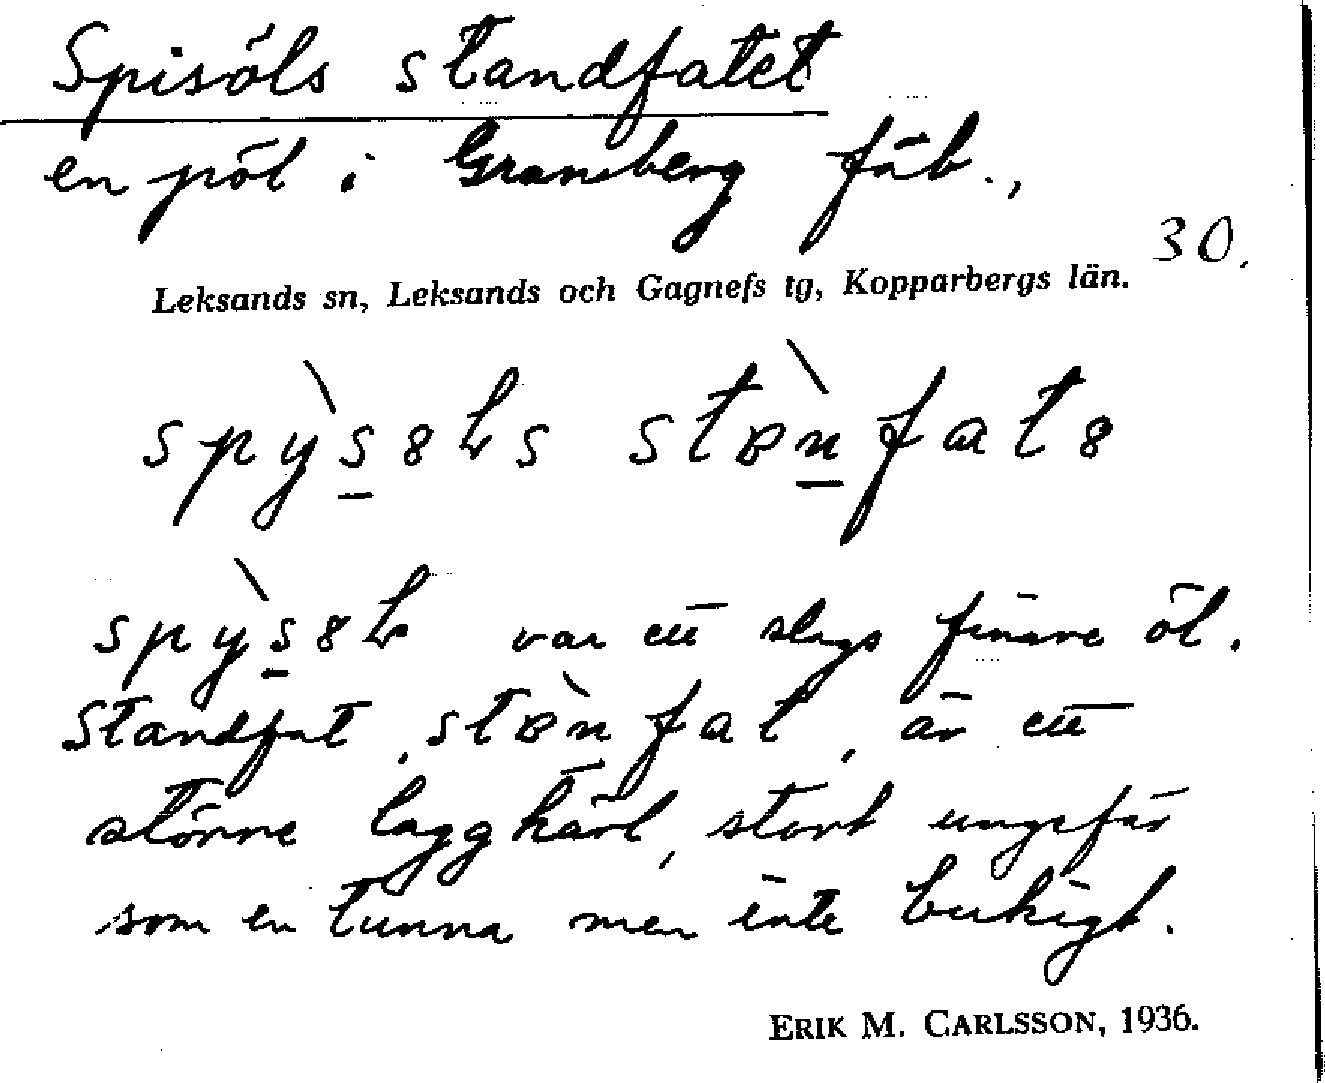 Spisöls standfatet
en pöl i Gransberg fäb.,
30.
Leksands sn, Leksands och Gagnefs tg, Kopparbergs län.
spỳs̲8ɫs stɒ̀n̲fat8
spỳs̲8ɫ var ett slags finare öl.
Standfat, stɒ̀n̲fat, är ett
större laggkärl, stort ungefär
som en tunna men inte bukigt.
ERIK M. CARLSSON, 1936.